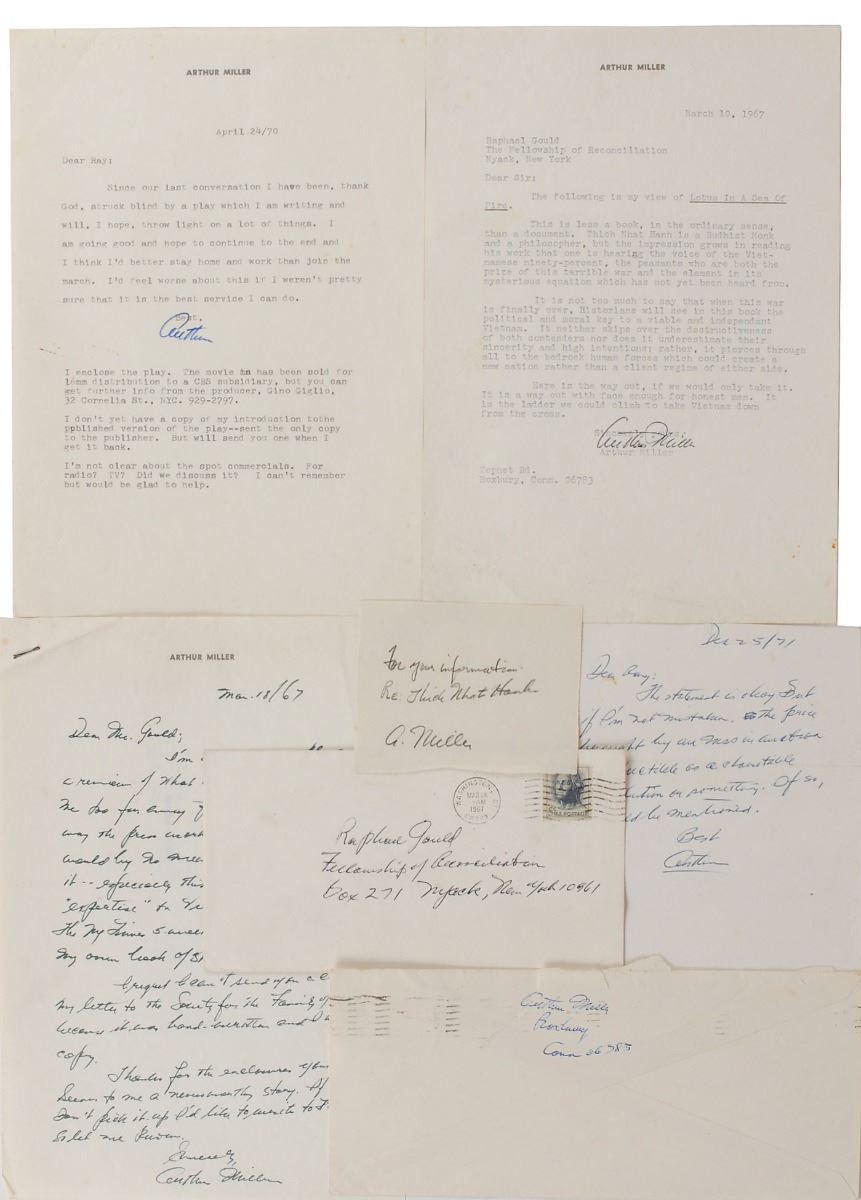 ARTHUR MILLER
April 24/70
Dear Ray:
Since our last conversation I have been, thank
God, struck blind by a play which I am writing and
will, I hope, throw light on a lot of things. I
am going good and hope to continue to the end and
I think I'd better stay home and work than join the
march. I'd feel worse about this if I weren't pretty
sure that it is the best service I can do.
Best,
Arthur
I enclose the play. The movie has been sold for
16mm distribution to a CBS subsidiary, but you can
get further info from the producer, Gino Giglio,
32 Cornelia St., NYC. 929-2797.
I don't yet have a copy of my introduction tothe
ppblished version of the play--sent the only copy
to the publisher. But will send you one when I
get it back.
I'm not clear about the spot commercials. For
radio? TV? Did we discuss it? I can't remember
but would be glad to help.
ARTHUR MILLER
March 10, 1967
Raphael Gould
The Fellowship of Reconciliation
Nyack, New York
Dear Sir:
The following is my view of Lotus In A Sea Of
Fire.
This is less a book, in the ordinary sense,
than a document. Thich Nhat Hanh is a Budhist Monk
and a philosopher, but the impression grows in reading
his work that one is hearing the voice of the Viet-
namese ninety-percent, the peasants who are both the
prize of this terrible war and the element in its
mysterious equation which has not yet been heard from.
It is not too much to say that when this war
is finally over, Historians will see in this book the
political and moral key to a viable and independant
Vietnam. It neither skips over the destructiveness
of both contenders nor does it underestimate their
sincerity and high intentions; rather, it pierces through
all to the bedrock human forces which could create a
new nation rather than a client regime of either side.
Here is the way out, if we would only take it.
It is a way out with face enough for honest men. It
is the ladder we could climb to take Vietnam down
from the cross.
Arthur Miller
Arthur Miller
Tophet Rd.
Roxbury, Conn. 06783
ARTHUR MILLER
Mar. 18/67
Dear Mr. Gould;
I'm
a review of what
me too far away
way the press
would by no
it -- especially this
"expertise" in
the NY Times
my own book of
I regret I can't send you a
my letter to the Society for the Family of
because it was hand-written and I
copy.
Thanks for the enclosures
Seems to me a newsworthy story. If
don't pick it up I'd like to write to
So let me know.
Sincerely,
Arthur Miller
For your information.
Re: Thich Nhat Hanh
A. Miller
Dec 25/71
Dear Ray:
The statement is okay but
if I'm not mistaken, the price
bought by an in auction
deductible as a charitable
or something. If so,
be mentioned.
Best
Arthur
WASHINGTON
1967
U.S. POSTAGE
Raphael Gould
Fellowship of Reconciliation
Box 271 Nyack, New York 10961
Arthur Miller
Roxbury
Conn 06783